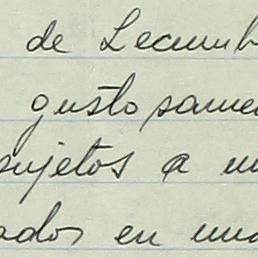 de Lecumb
gustosame
sujetos a un
ados en una